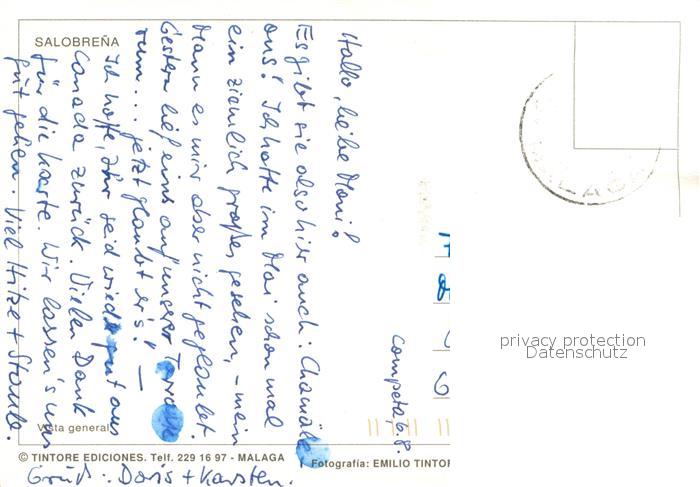 SALOBREÑA
Hallo, liebe Moni!
Es gibt sie also hier auch: Chamäle
ons! Ich hatte im Mai schon mal
ein ziemlich großes gesehen, – mein
Mann es mir aber nicht geglaubt.
Gestern lief eins auf unserer Terrasse
rum... jetzt glaubt er's! —
Ich hoffe, Ihr seid wieder gut aus
Canada zurück. Vielen Dank
für die Karte. Wir lassen's uns
gut gehen. Viel Hitze + Staub.
Gruß: Doris + Karsten.
Competa, 6.8.
privacy protection
Datenschutz
Vista general
© TINTORE EDICIONES. Telf. 229 16 97 - MALAGA
Fotografía: EMILIO TINTOR